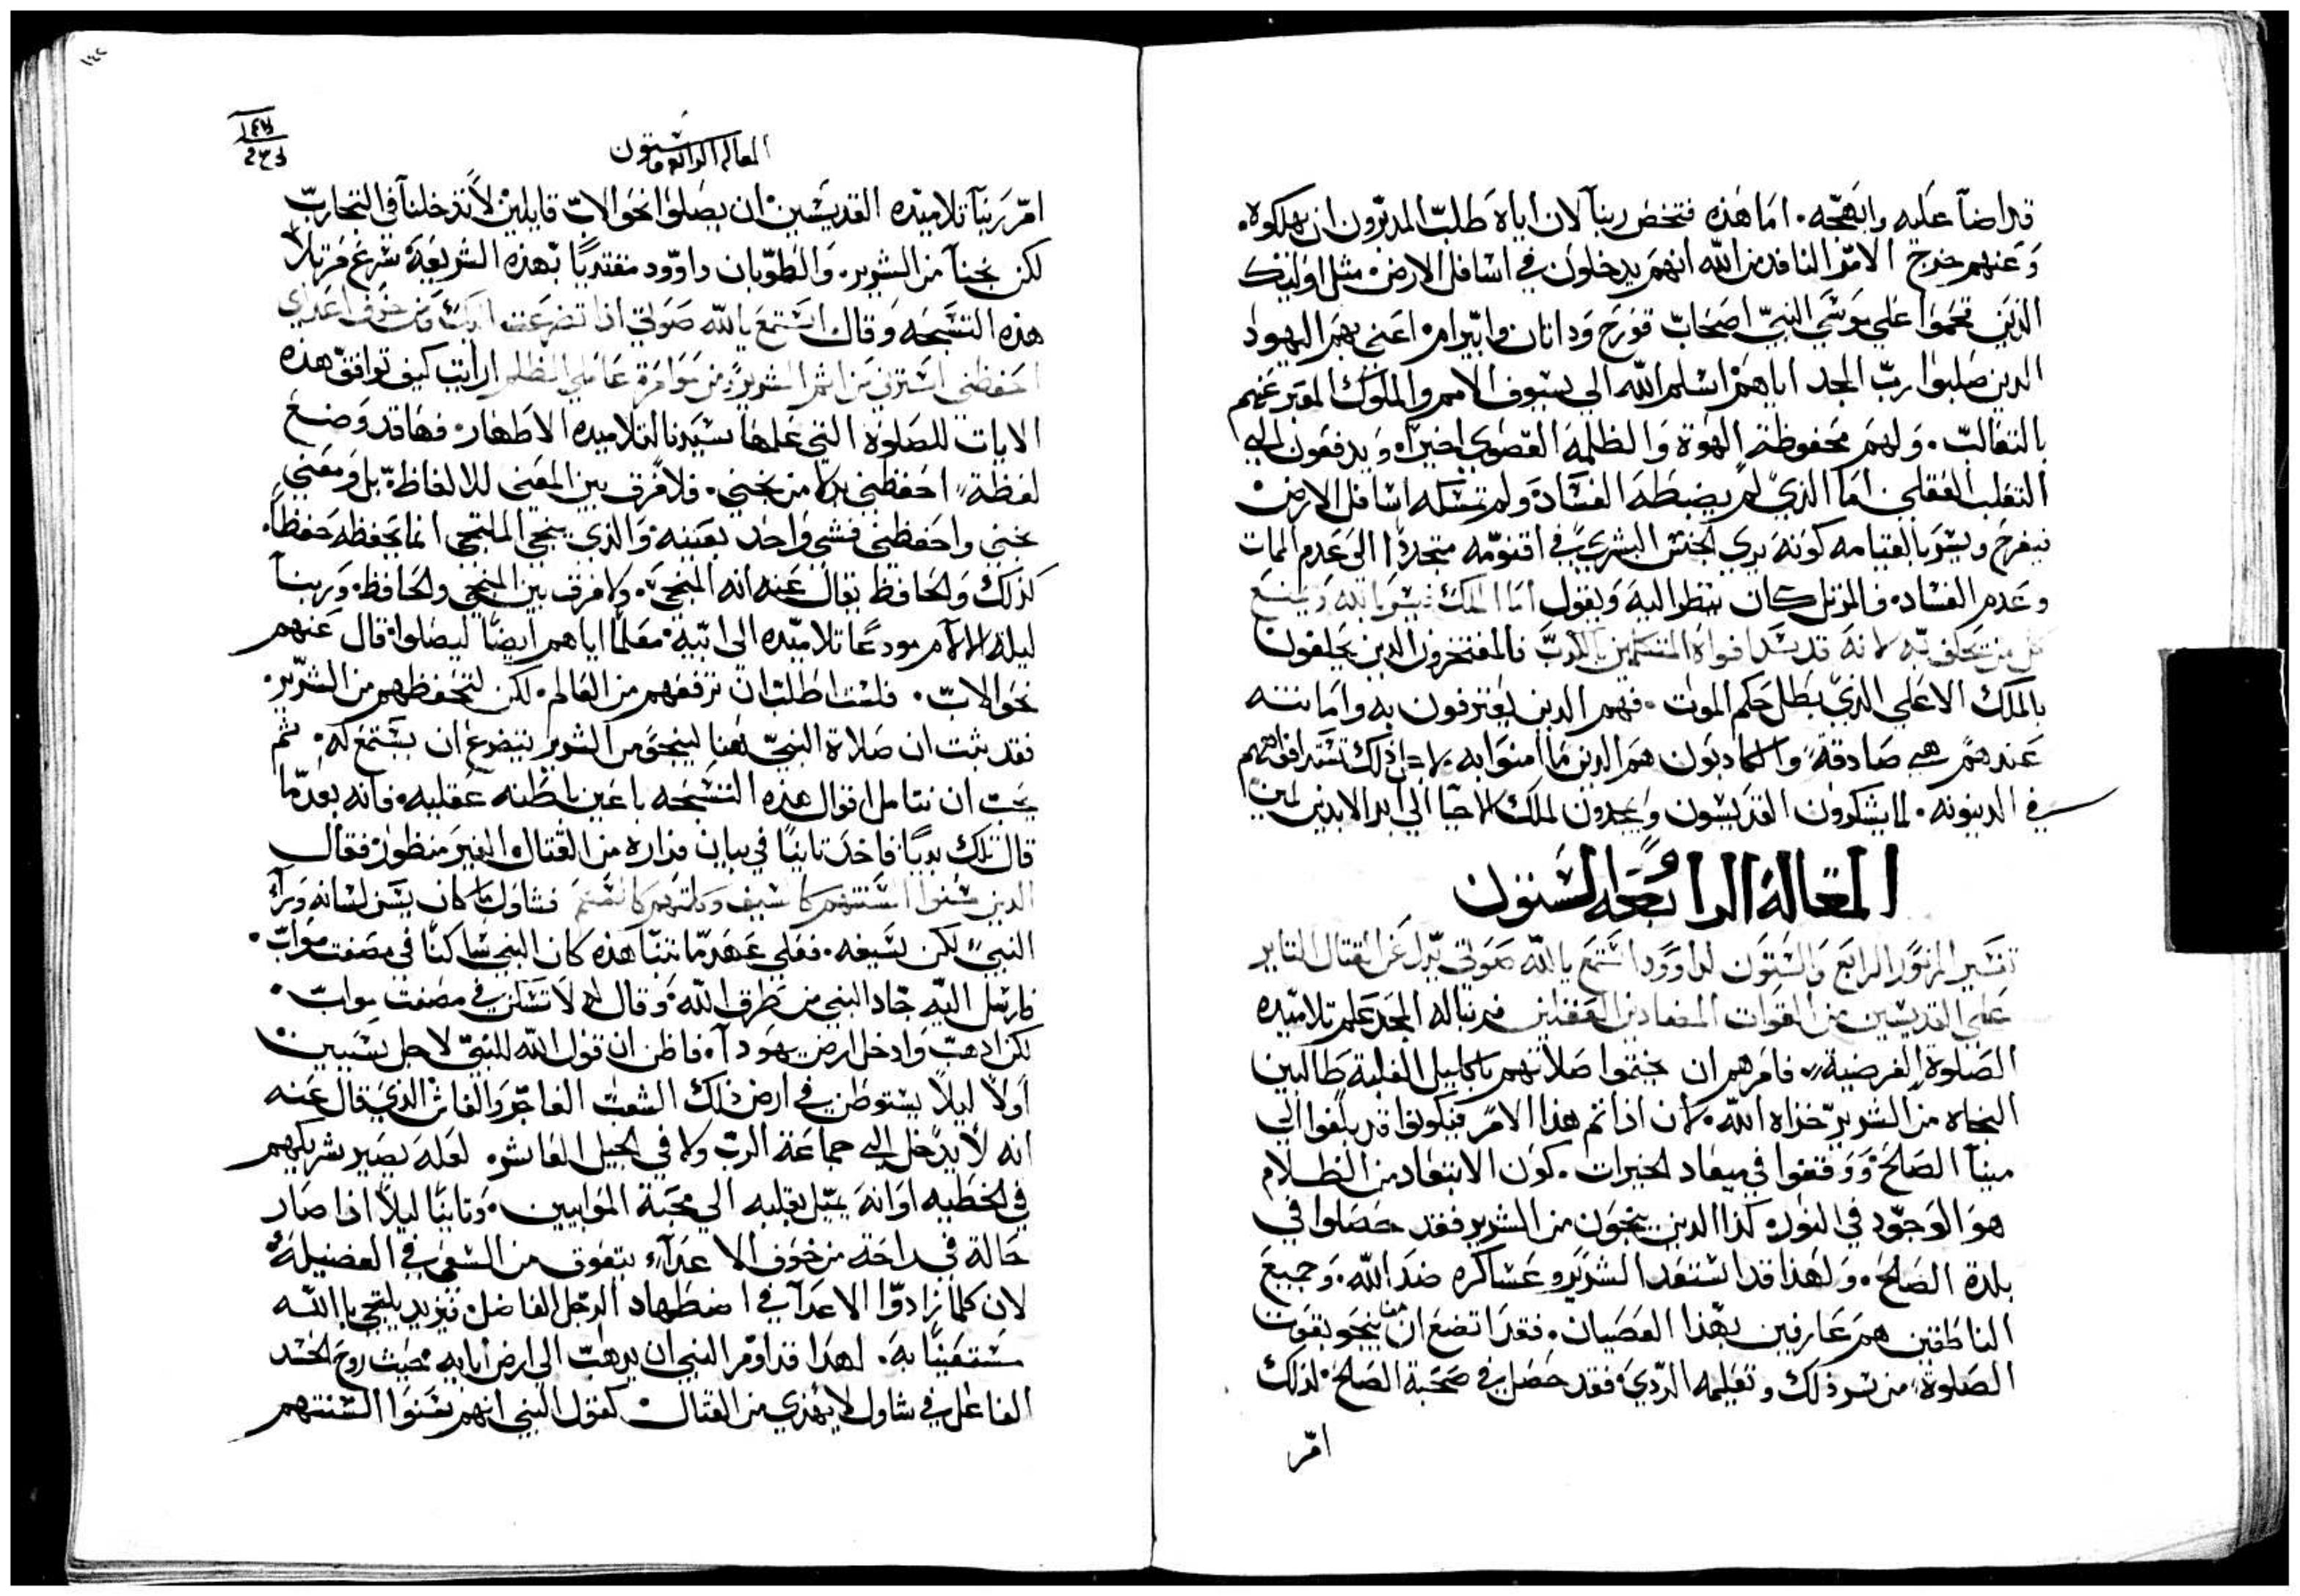 قد اضآ عليه وابهجه. اما هذه فتخص ربنآ لان اياه طلب المدبرون ان يهلكوه.
وعنهم خرج الامر النافد من الله انهم يدخلون في اسافل الارض مثل اوليك
الذين تحموا علي موسي النبي اصحاب قورح وداتان وابيرام اعني بهم اليهود
الدين صلبوا رب المجد اياهم اسلم الله الي سيوف الامم والملوك المعبر عنهم
بالتعالب. ولهم محفوظة الهوة والظلمة القصوي اخيرا. ويدفعون الي
التعلب العقلي. اما الذي لم يضبطه الفساد ولم تمسكه اسافل الارض
فيفرح ويسر بالقيامه كونه يري الجنس البشري في اقنومه متجددا الي عدم الممات
وعدم الفساد. فالمرتل كان ينظر اليه ويقول اما الملك فيسر بالله ويمتدح
كل من يحلف به لانه قد سد افواه المتكلمين بالكدب فالمفتخرون الدين يحلفون
بالملك الاعلي الذي بطل حكم الموت. فهم الدين يعترفون به وامانته
عندهم هي صادقة، والكادبون هم الدين ما امنوا به لاجل ذلك تستد افواههم
في الدينونه. لما يشكرون القديسون ويمجدون لملك الاحيا الي ابد الابدين امين
المقالة الرابعة والستون
تفسير المزمور الرابع والستون لداوود استمع يا الله صوتي يدل عن القتال الثاير
علي القديسين من القوات المضادين العقليين فربنا له المجد علم تلاميده
الصلوة الفرضية، فامرهم ان يختموا صلاتهم باكاليل الغلبة طالبين
النجاه من الشرير خزاه الله. لان اذا تم هذا الامر فيكونوا قد بلغوا الي
مينآ الصلح ووقفوا في ميعاد الخيرات. كون الابتعاد من الظلام
هو الوجود في النور. كذا الدين ينجون من الشرير فقد حصلوا في
بلدة الصلح. ولهذا قد استعد الشرير وعساكره ضد الله. وجميع
الناطقين هم عارفين بهذا العصيان. فقد اتضع ان من ينجو بقوت
الصلوة من شر ذلك وتعليمه الردي فقد حصل في صحبة الصلح. لذلك
امر
١٤٢
١٤٧
المقاله الرابعه وستون
امر ربنآ تلاميده القديسين ان يصلوا نحو الاب قايلين لا تدخلنآ في التجارب
لكن نجنآ من الشرير. والطوبان داوود مقتديًا بهذه الشريعة شرع مرتلا
هذه التسبحه وقال استمع يا الله صوتي اذا تضرعت اليك ومن خوف اعداي
احفظني استرني من اشر الشرير ومن موامرة عاملي الظلم ارايت كيف توافق هذه
الايات للصلوة التي علمها سيدنا لتلاميده الاطهار. فها قد وضع
لفظة، احفظني بدلا من نجني. فلا فرق بين المعني للالفاظة بل ومعني
نجني واحفظني فشي واحد بعينه والذي ينجي الملتجي انما يحفظه حفظاً.
كذلك والحافظ يقال عنه انه المنجي. ولا فرق بين المنجي والحافظ. وربنآ
ليلة الالام مودعًا تلاميده الي ابيه معلمًا اياهم ايضًا ليصلوا قال عنهم
نحو الاب. فلست اطلب ان ترفعهم من العالم. لكن لتحفظهم من الشرير.
فقد بثت ان صلاة النبي هنا لينجو من الشرير يتضرع ان يستمع له. ثم
يجب ان نتامل اقوال هذه التسبحه باعين باطنه عقليه. فانه بعد ما
قال تلك بديًا فاخد ثانيًا في بيان مراره من القتال الغير منظور فقال
الدين سنوا السنتهم كالسيف وكلتهم كالسهم فشاول ما كان يسن لسانه ورآء
النبي، لكن لسيفه. فعلي عهد ما نبنا هذه كان النبي ساكنًا في مصفت مواب.
فارسل اليه جاد النبي من طرف الله. وقال له لا تسكن في مصفت مواب.
لكن ادهب وادخل ارض يهودآ. فاظن ان قول الله للنبي لاجل سببين
اولاً ليلا يستوطن في ارض ذلك الشعب الفاجر والفاش الذي قال عنه
انه لا يدخل الي جماعة الرب ولا في الجيل العاشر. لعله يصير شريكهم
في الخطيه او انه يميل بقلبه الي محبة الموابيين. وثانيًا ليلا اذا صار
حاله في راحة من خوف الاعدآء يتعوق من السعي في الفضيلة
لان كلما زادوا الاعدآ في اضطهاد الرجل الفاضل فيزيد يلتجي بالله
مستعينًا به. لهدا قد اومر النبي ان يدهب الي ارض ابايه بحيث روح الحسد
الفاعل في شاول لا يهدي من القتال. كقول النبي انهم سنوا السنتهم